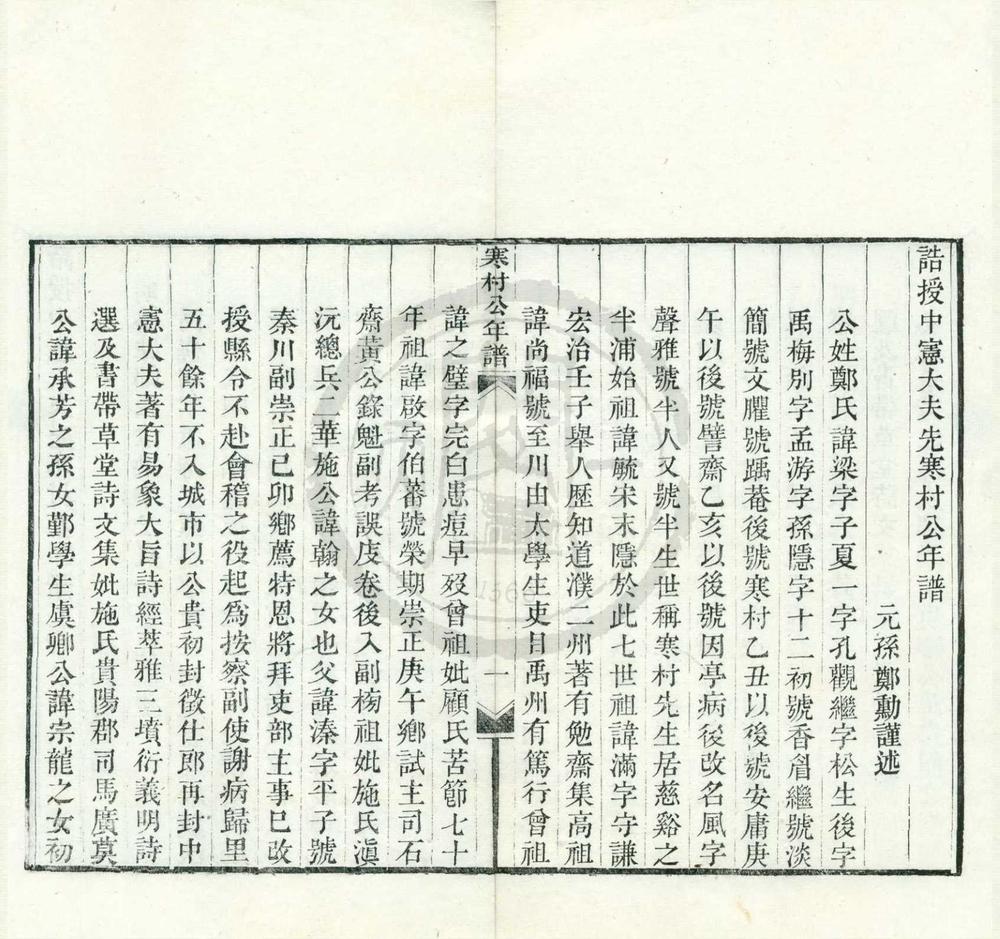 誥授中憲大夫先寒村公年譜
元孫鄭勳謹述
公姓鄭氏諱梁字子夏一字孔觀繼字松生後字
禹梅別字孟游字孫隱字十二初號香眉繼號淡
簡號文臞號踽菴後號寒村乙丑以後號安庸庚
午以後號譬齋乙亥以後號因亭病後改名風字
聲雅號半人又號半生世稱寒村先生居慈谿之
半浦始祖諱毓宋末隱於此七世祖諱滿字守謙
宏治壬子舉人歷知道濮二州著有勉齋集高祖
諱尚福號至川由太學生吏目禹州有篤行曾祖
寒村公年譜
一
諱之璧字完白患痘早歿曾祖妣顧氏苦節七十
年祖諱啟字伯蕃號榮期崇正庚午鄉試主司石
齋黃公錄魁副考誤庋卷後入副榜祖妣施氏滇
沅總兵二華施公諱翰之女也父諱溱字平子號
秦川副崇正己卯鄉薦特恩將拜吏部主事已改
授縣令不赴會稽之役起為按察副使謝病歸里
五十餘年不入城市以公貴初封徵仕郎再封中
憲大夫著有易象大旨詩經萃雅三墳衍義明詩
選及書帶草堂詩文集妣施氏貴陽郡司馬廣莫
公諱承芳之孫女鄞學生虞卿公諱宗龍之女初